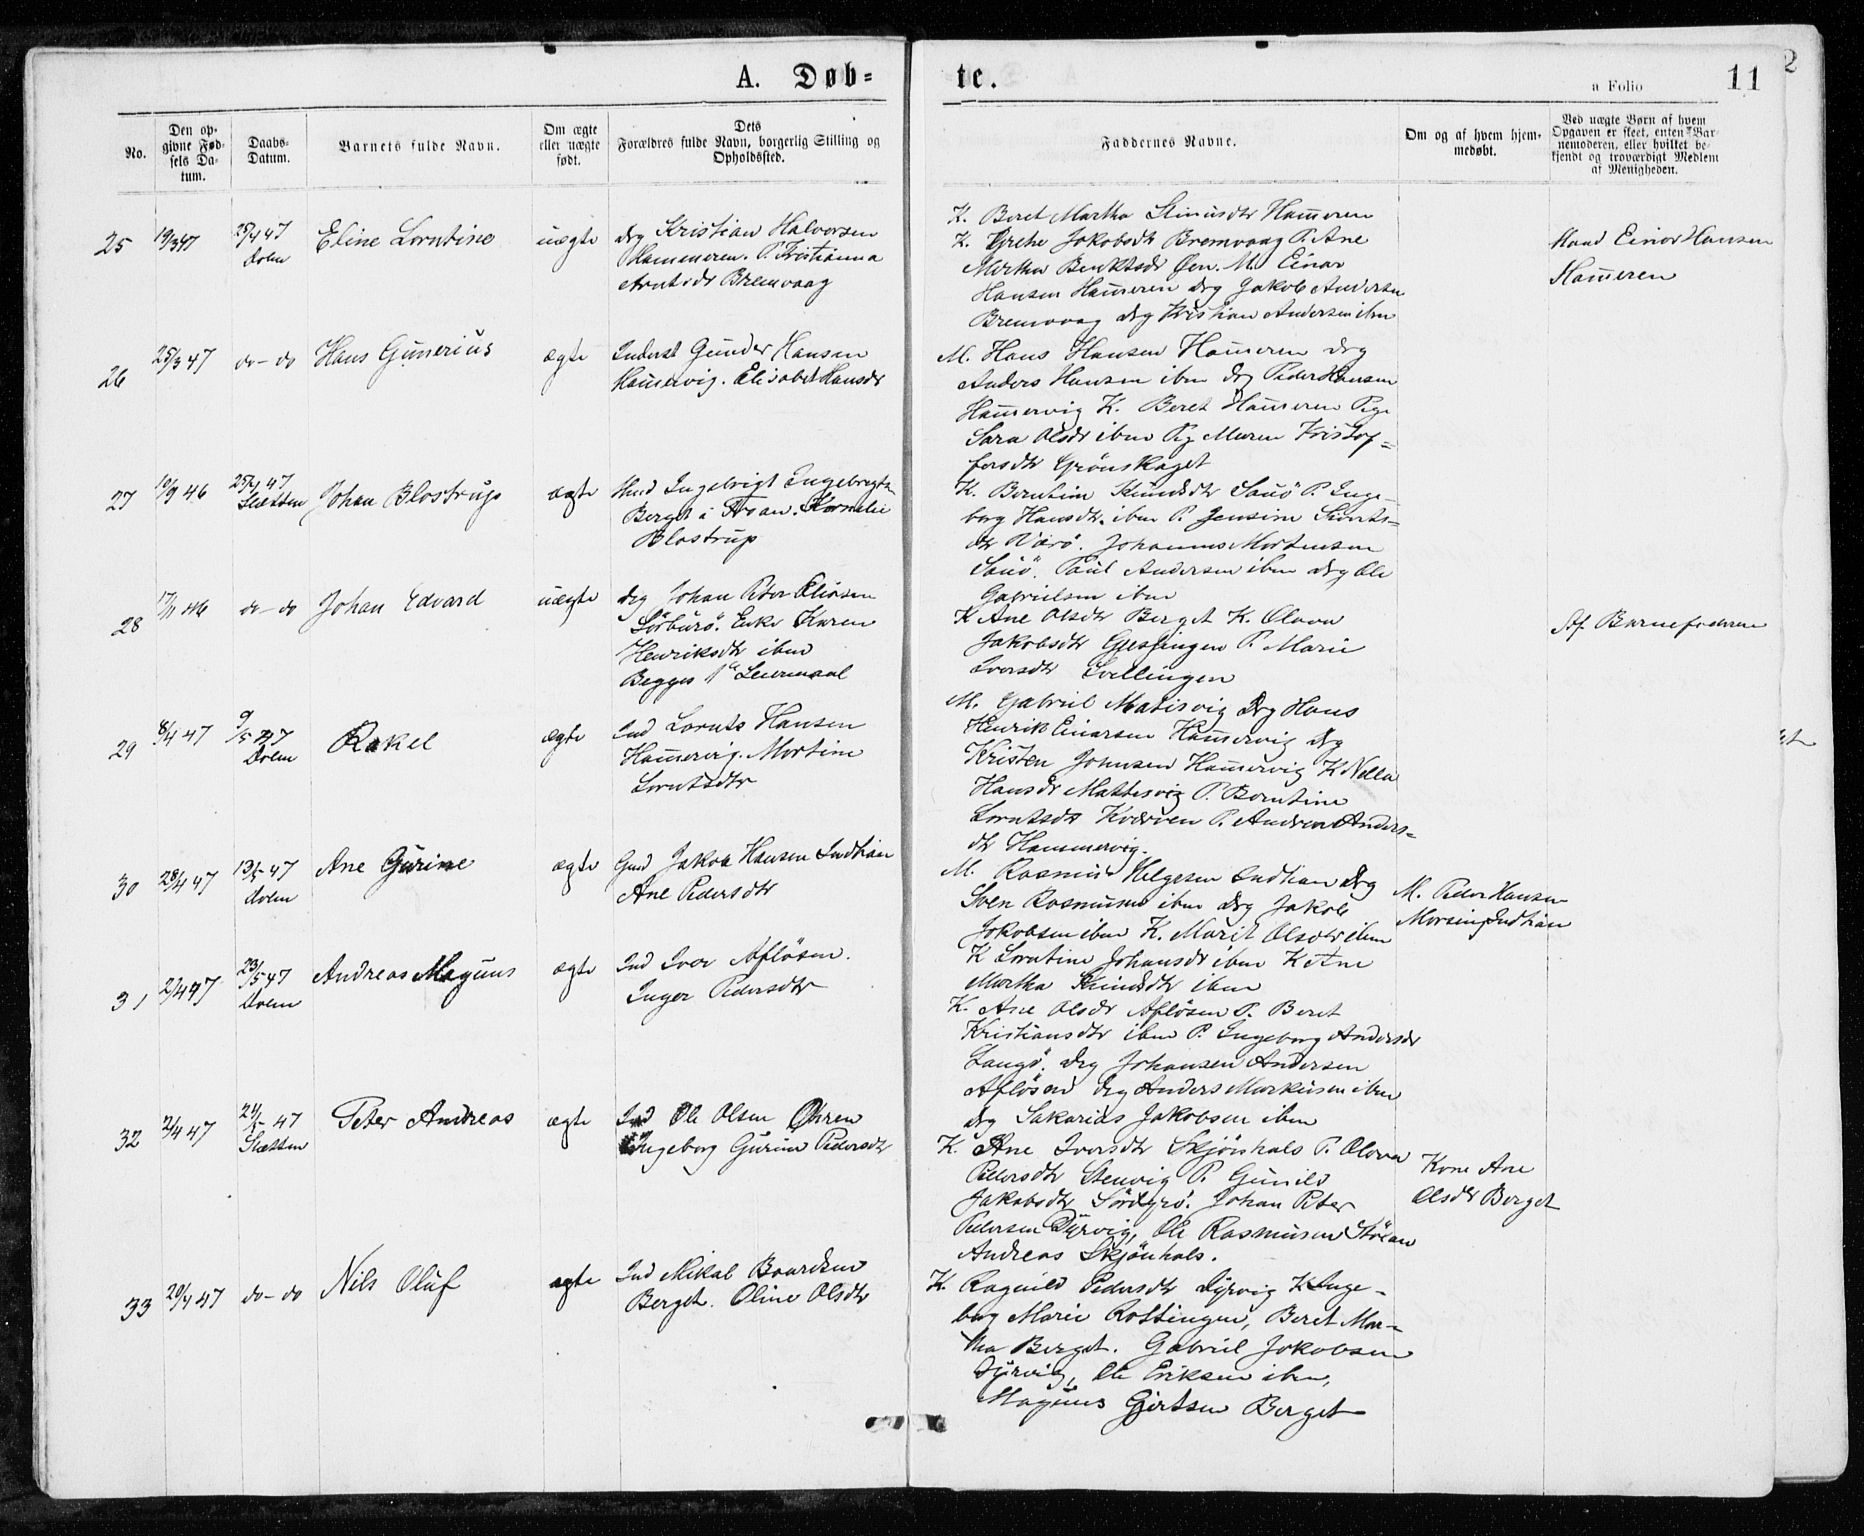 A. Døb-
te.
a Folio
11
2
No.
Den op-
givne Fød-
sels Da-
tum.
Daabs-
Datum.
Barnets fulde Navn.
Om ægte
eller uægte
født.
Dets
Forældres fulde Navn, borgerlig Stilling og
Opholdssted.
Faddernes Navne.
Om og af hvem hjem-
medøbt.
Ved uægte Børn af hvem
Opgaven er skeet, enten Bar-
nemoderen, eller hvilket be-
kjendt og troværdigt Medlem
af Menigheden.
25
19/3 47
25/4 47
Dolm
Eline Lorntine
uægte
drg Kristian Halvorsen
Hammeren. P. Kristianna
Arntsdr Bremvaag
K. Beret Martha Ham̅eren
K. Grethe Jakobsdtr Bremvaag P. Ane
Martha Øen. M. Einar
Hansen Ham̅eren drg Jakob Andersen
Bremvaag drg Kristian Andersen ibm
Mand Einar Hansen
Ham̅eren
26
25/3 47
do-do
Hans Gunerius
ægte
Inderst Gunder Hansen
Ham̅ervig. Elisabet Hansdr
M. Hans Hansen Ham̅eren drg
Anders Hansen ibm drg Peder Hansen
Ham̅ervig K. Beret Ham̅eren Pige
Sara Olsdr ibm Pig Maren Kristof-
fersdtr Grönskaget
27
10/9 46
25/4 47
Sletten
Johan Blostrup
ægte
Hmd Ingebrigt Ingebrigts
Berget i Froan. Kornelie
Blostrup
K. Berntine Sauö P. Inge-
borg Hansdtr. ibm P. Jensine
dtr Værö. Johannes Mortensen
Sauö. Paul Andersen ibm drg Ole
Gabrielsen ibm
28
17/11 46
do-do
Johan Edvard
uægte
drg Johan Peter Eliasen
Sörburö. Enke Karen
Henriksdtr ibm
Begges 1ste Leiermaal
K Ane Olsdtr Berget K. Olava
Jakobsdtr Gjessingen P. Marie
Iversdtr Svellingen
Af Barnefaderen
29
8/4 47
9/5 47
Dolm
Rakel
ægte
Ind Lornts Hansen
Ham̅ervig. Mortine
Lorntsdtr
M. Gabriel Matisvig drg Hans
Henrik Einarsen Ham̅ervig drg
Kristen Johnsen Ham̅ervig K Nella
Hansdr Mattisvig P. Berntine
Lorntsdtr Kværven P. Andrea Anders-
dtr Hammervig.
30
28/4 47
13/5 47
Dolm
Ane Gurine
ægte
Gmd Jakob Hansen Indhian
Ane Pedersdtr
M. Rasmus Helgesen Indhian drg
Sven Rasmusen ibm drg Jakob
Jakobsen ibm K. Marit Olsdtr ibm
K Lorntine Johansdr ibm K Ane
Martha ibm
M. Peder Hansen
Indhian
31
2/4 47
23/5 47
Dolm
Andreas Magnus
ægte
Ind Iver Aflösen.
Inger Pedersdtr
K. Ane Olsdr Aflösen P. Beret
Kristiansdtr ibm P. Ingeborg Andersdr
Langö. drg Johansen Andersen
Aflösen drg Anders Markusen ibm
drg Sakarias Jakobsen ibm
32
2/4 47
24/5 47
Sletten
Peter Andreas
ægte
Ind Ole Olsen Öhren
Ingeborg Gurine Pedersdtr
K. Ane Iversdtr Skjönhals P. Olava
Pedersdtr Stenvig P. Gunild
Jakobsdtr Johan Peter
Pedersen Dyrvig, Ole Rasmusen
Andreas Skjönhals.
Kone Ane
Olsdtr Berget
33
20/4 47
do-do
Nils Oluf
ægte
Ind Mikal Baardsen
Berget. Oline Olsdtr
K. Ragnild Pedersdtr Dyrvig K Inge-
borg Marie Rottingen, Beret Mar-
tha Berget. Gabriel Jakobsen
Dyrvig, Ole Eriksen ibm,
Magnus Gjertsen Berget